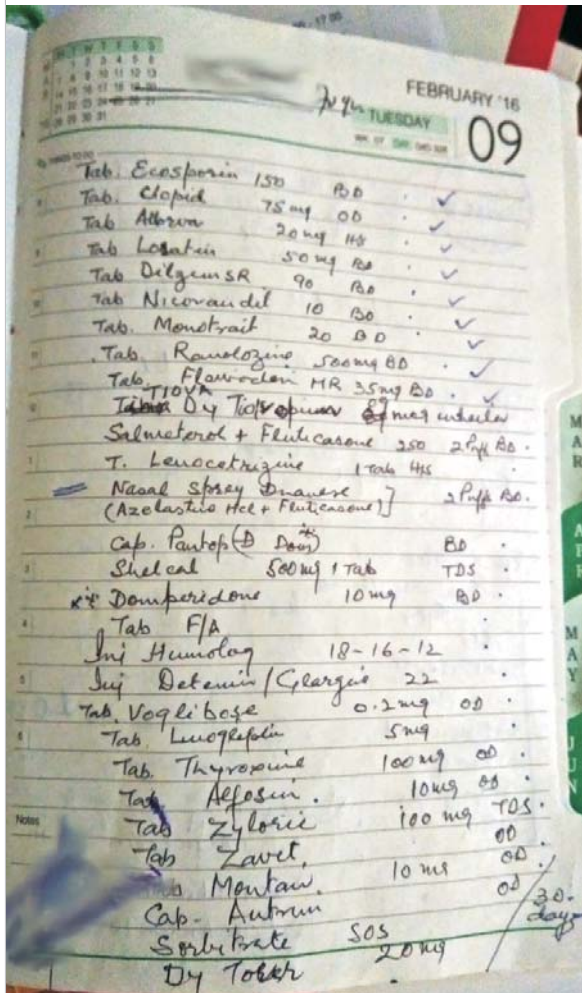 FEBRUARY '16
TUESDAY
09
THINGS TO DO
Tab. Ecosporin 150 BD
Tab. Clopid 75mg OD
Tab Atorva 20mg HS
Tab Losatain 50mg BD
Tab Dilgem SR 90 BD
Tab Nicorandil 10 BD
Tab. Monotrait 20 BD
Tab. Ranolozine 500mg BD
Tab. Flavedon MR 35mg BD
TIOVA
Dy Tiotropium mcg inhaler
Salmeterol + Fluticasone 250 2 Puff BD
T. Levocetrizine 1 Tab HS
Nasal Spray Duonase ] 2 Puff BD.
(Azelastin Hcl + Fluticasone)
Cap. Pantop (D BD
Shelcal 500mg 1 Tab TDS
Domperidone 10mg BD
Tab F/A
Inj Humolog 18-16-12
Inj Detemin/Glargine 22
Tab. Voglibose 0.2mg OD
Tab. Linogliptin 5mg
Tab. Thyroxine 100mg OD
Tab Alfosin. 10mg OD
Tab Zyloric 100 mg TDS
Tab Zavet, OD
Montair. 10 mg OD
Cap. Autrin OD
Sorbitrate SOS
Dy 20mg
30 days
Notes
M
A
R
A
P
R
M
A
Y
J
U
N